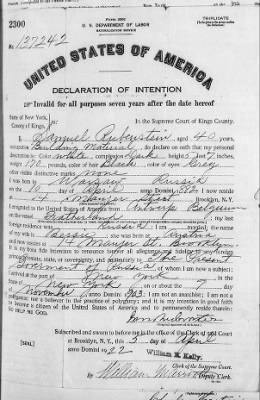 Form 2202
TRIPLICATE
2300
U. S. DEPARTMENT OF LABOR
NATURALIZATION SERVICE
No. 127242
UNITED STATES OF AMERICA
DECLARATION OF INTENTION
Invalid for all purposes seven years after the date hereof
State of New York,
County of Kings, In the Supreme Court of Kings County.
I, Samuel Rubenstein, aged 40 years,
occupation Building Material, do declare on oath that my personal
description is: Color white, complexion Dark, height 5 feet 7 inches,
weight 170 pounds, color of hair Black, color of eyes Grey
other visible distinctive marks none
I was born in Warsaw Russia
on the 10 day of April, anno Domini 1882; I now reside
at Street Brooklyn, N.Y.
I emigrated to the United States of America from Antwerp Belgium
on the vessel Zeeland; my last
foreign residence was Russia; I am married; the name
of my wife is Bessie; she was born at
and now resides at Brooklyn
It is my bona fide intention to renounce forever all allegiance and fidelity to any foreign
prince, potentate, state, or sovereignty, and particularly to The Present
Government of Russia, of whom I am now a subject;
I arrived at the port of New York, in the
State of New York, on or about the day
of November, anno Domini 1903; I am not an anarchist; I am not a
polygamist nor a believer in the practice of polygamy; and it is my intention in good faith
to become a citizen of the United States of America and to permanently reside therein:
SO HELP ME GOD.
Subscribed and sworn to before me in the office of the Clerk of said Court
at Brooklyn, N.Y., this 5 day of April
anno Domini 1922
[SEAL]
William E. Kelly,
Clerk of the Supreme Court.
By William
Deputy Clerk.